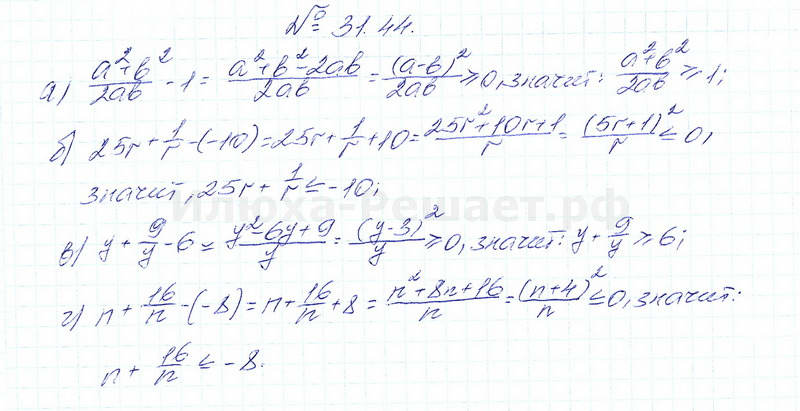 № 31.44.
а) (a²+b²)/(2ab) - 1 = (a²+b²-2ab)/(2ab) = (a-b)²/(2ab) ≥ 0, значит: (a²+b²)/(2ab) ≥ 1;
б) 25r + 1/r - (-10) = 25r + 1/r + 10 = (25r²+10r+1)/r = (5r+1)²/r ≤ 0,
значит, 25r + 1/r ≤ -10;
Илюха-Решает.рф
в) y + 9/y - 6 = (y²-6y+9)/y = (y-3)²/y ≥ 0, значит: y + 9/y ≥ 6;
г) n + 16/n - (-8) = n + 16/n + 8 = (n²+8n+16)/n = (n+4)²/n ≤ 0, значит:
n + 16/n ≤ -8.